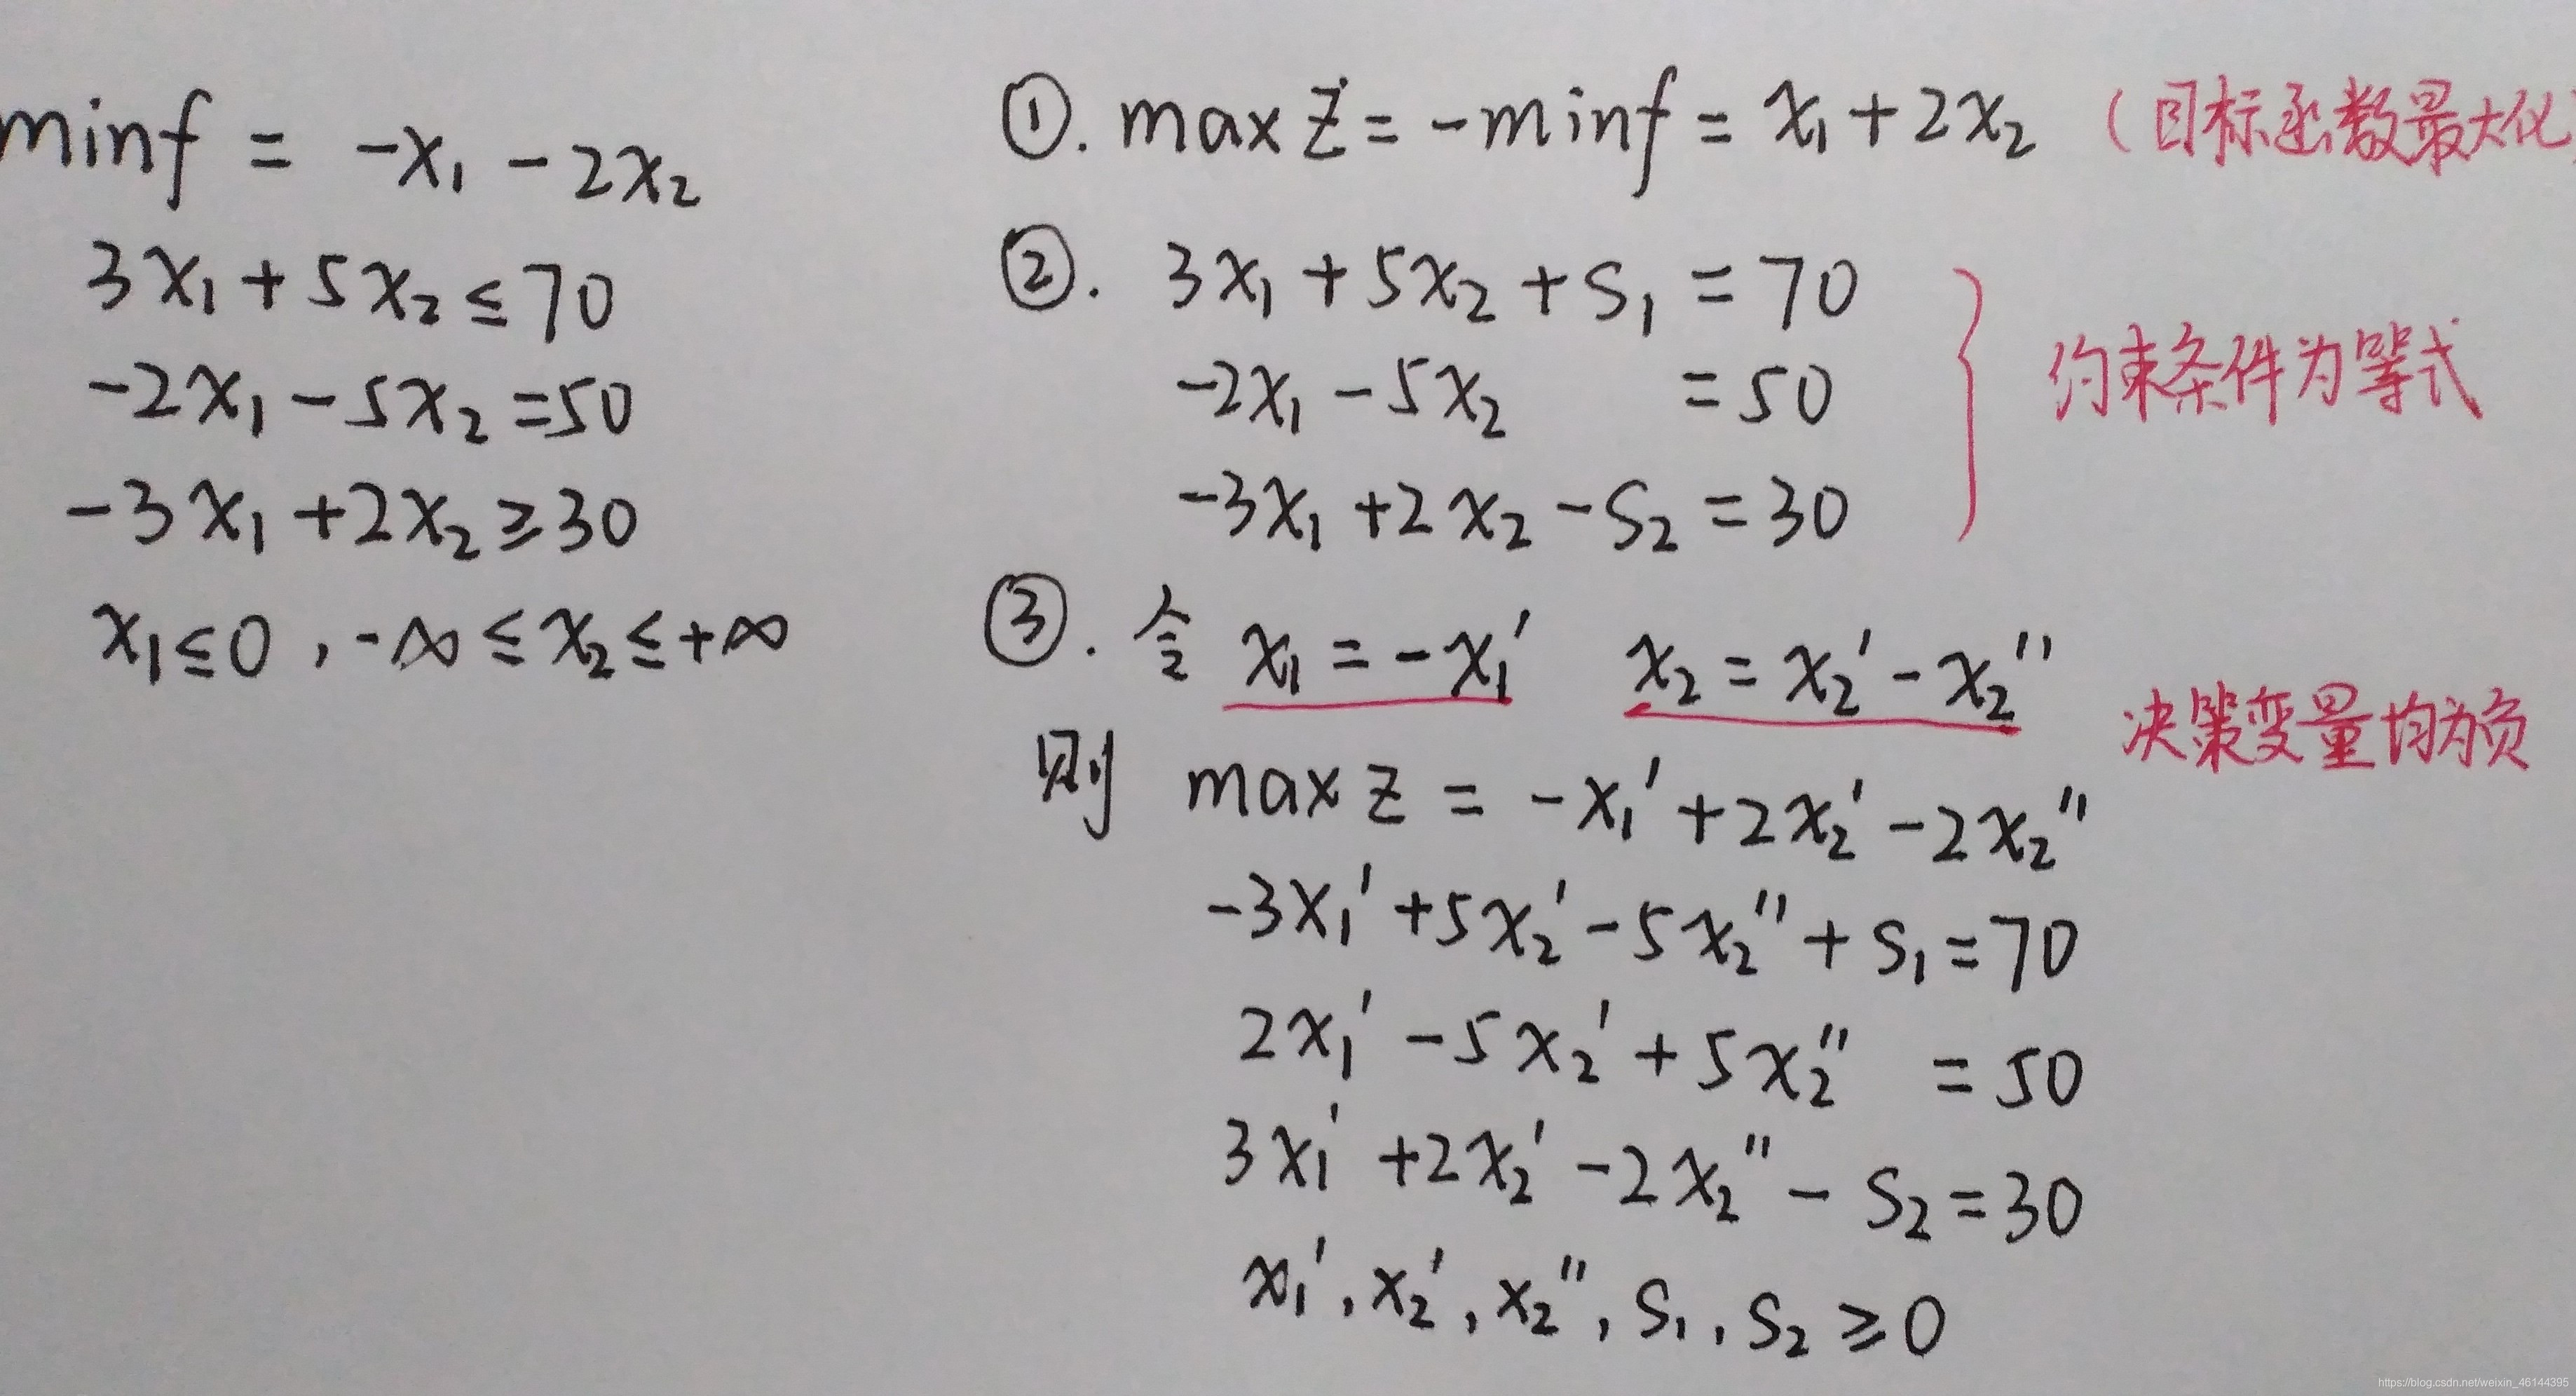 minf = -x₁ - 2x₂
3x₁ + 5x₂ ≤ 70
-2x₁ - 5x₂ = 50
-3x₁ + 2x₂ ≥ 30
x₁ ≤ 0 , -∞ ≤ x₂ ≤ +∞
①. max Z = -minf = x₁ + 2x₂ (目标函数最大化)
②. 3x₁ + 5x₂ + S₁ = 70
-2x₁ - 5x₂ = 50
约束条件为等式
-3x₁ + 2x₂ - S₂ = 30
③. 令 x₁ = -x₁' x₂ = x₂' - x₂''
决策变量均为负
则 max Z = -x₁' + 2x₂' - 2x₂''
-3x₁' + 5x₂' - 5x₂'' + S₁ = 70
2x₁' - 5x₂' + 5x₂'' = 50
3x₁' + 2x₂' - 2x₂'' - S₂ = 30
x₁', x₂', x₂'', S₁, S₂ ≥ 0
https://blog.csdn.net/weixin_46144395